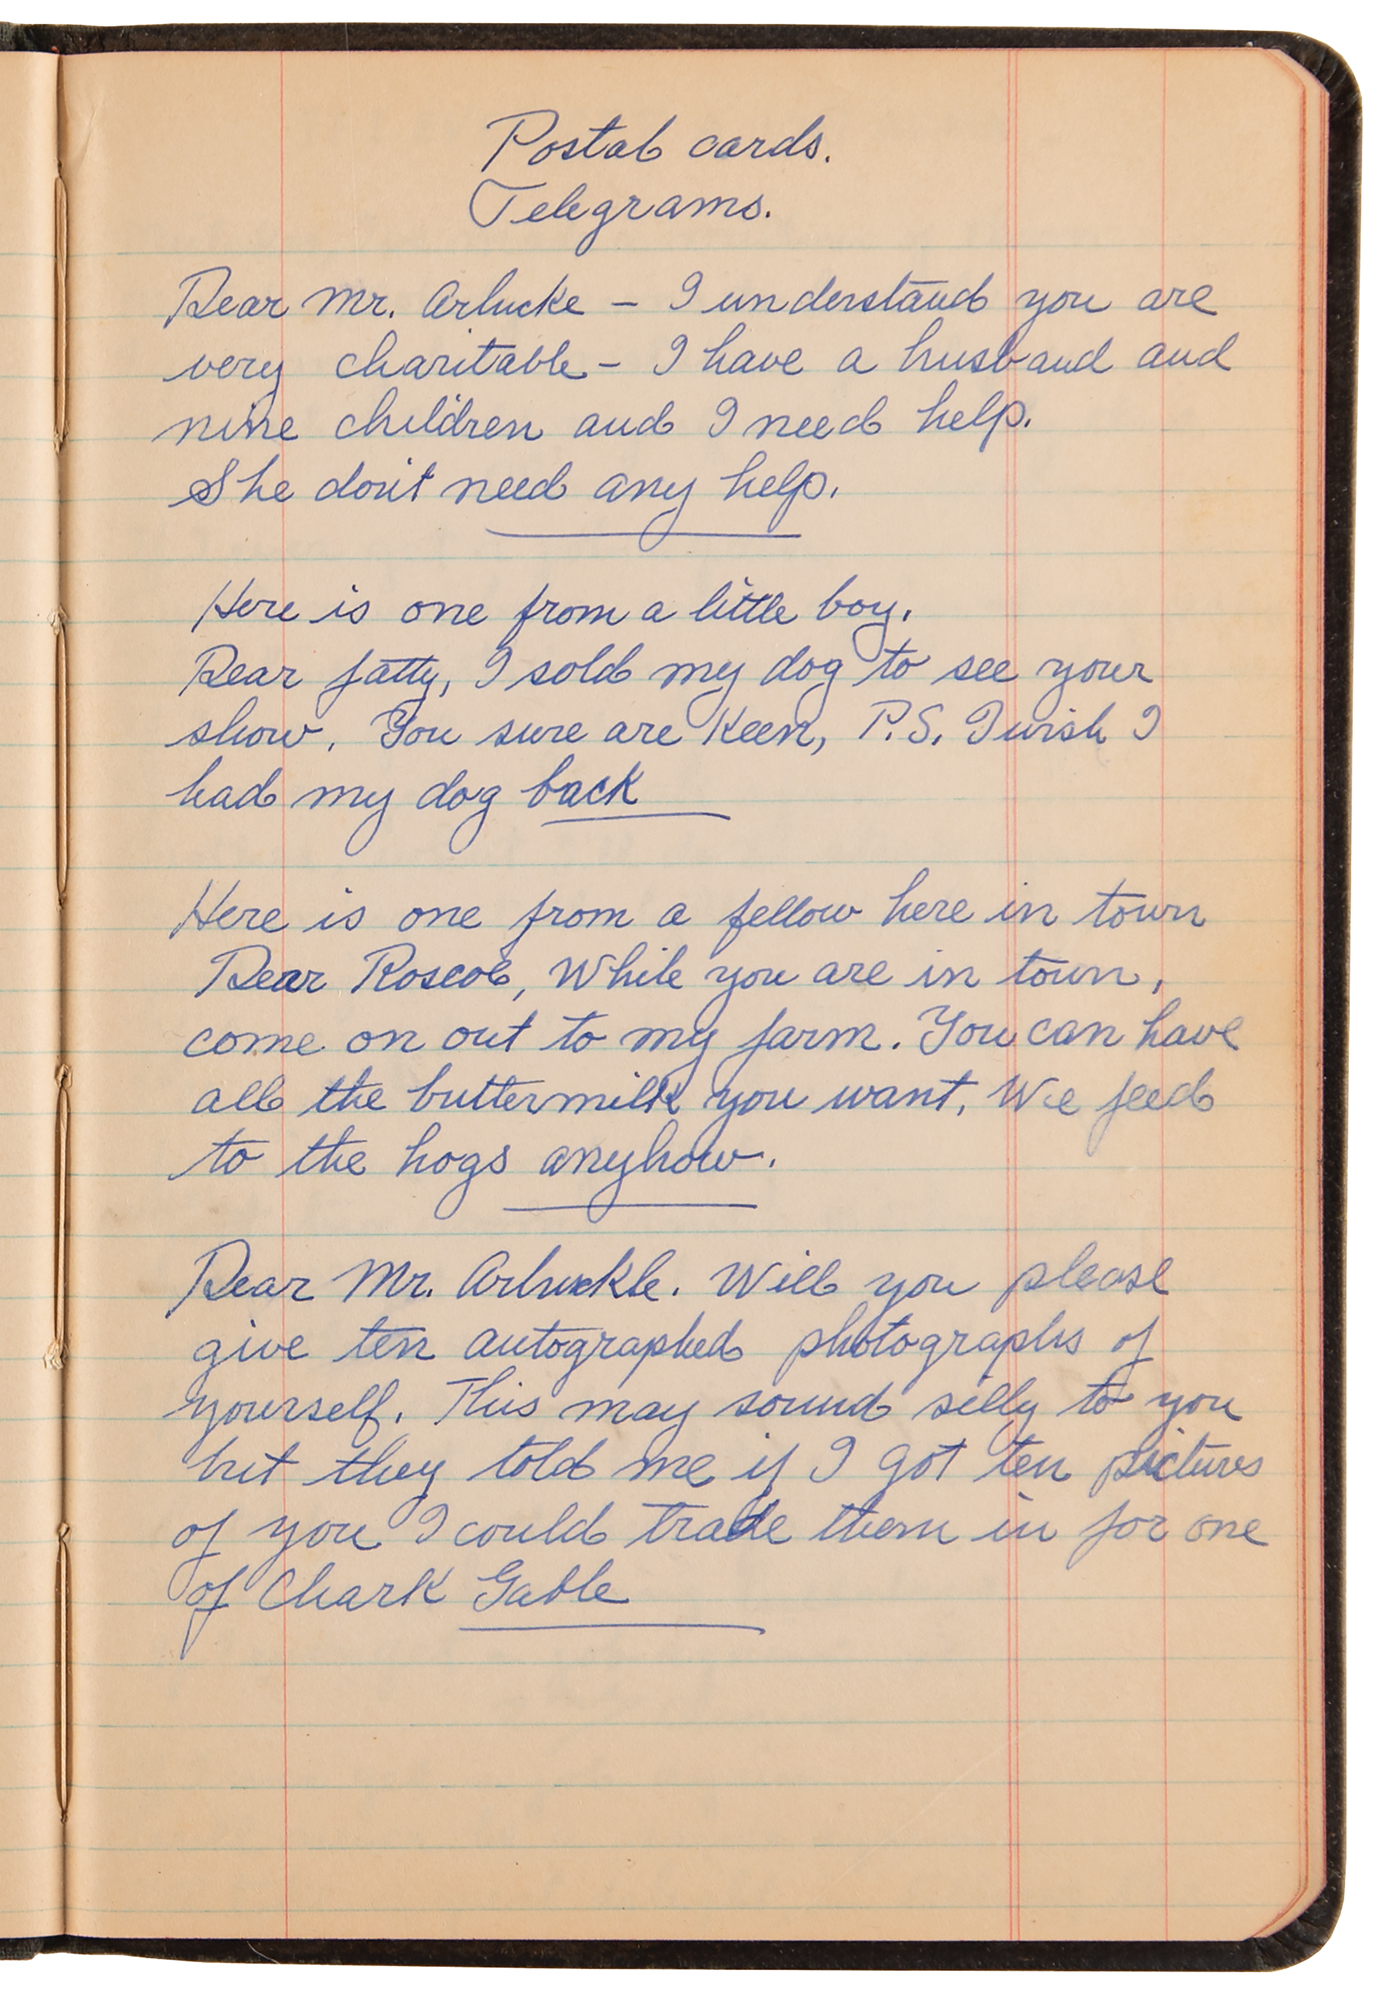 Postal cards.
Telegrams.
Dear Mr. Arlucke – I understand you are
very charitable – I have a husband and
nine children and I need help.
She don't need any help.
Here is one from a little boy.
Dear fatty, I sold my dog to see your
show. You sure are keen, P.S. I wish I
had my dog back
Here is one from a fellow here in town
Dear Roscoe, While you are in town,
come on out to my farm. You can have
all the buttermilk you want. We feed
to the hogs anyhow.
Dear Mr. Arbuckle. Will you please
give ten autographed photographs of
yourself. This may sound silly to you
but they told me if I got ten pictures
of you I could trade them in for one
of Chark Gable